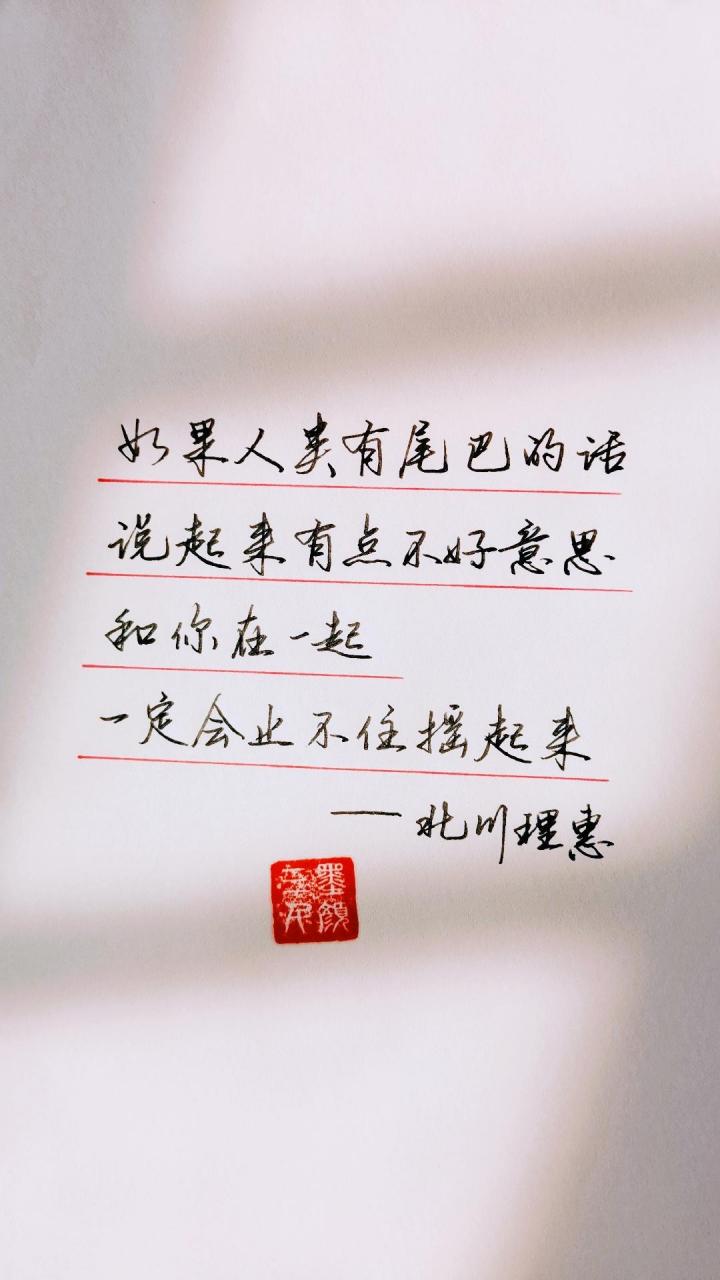 如果人类有尾巴的话
说起来有点不好意思
和你在一起
一定会止不住摇起来
——北川理惠